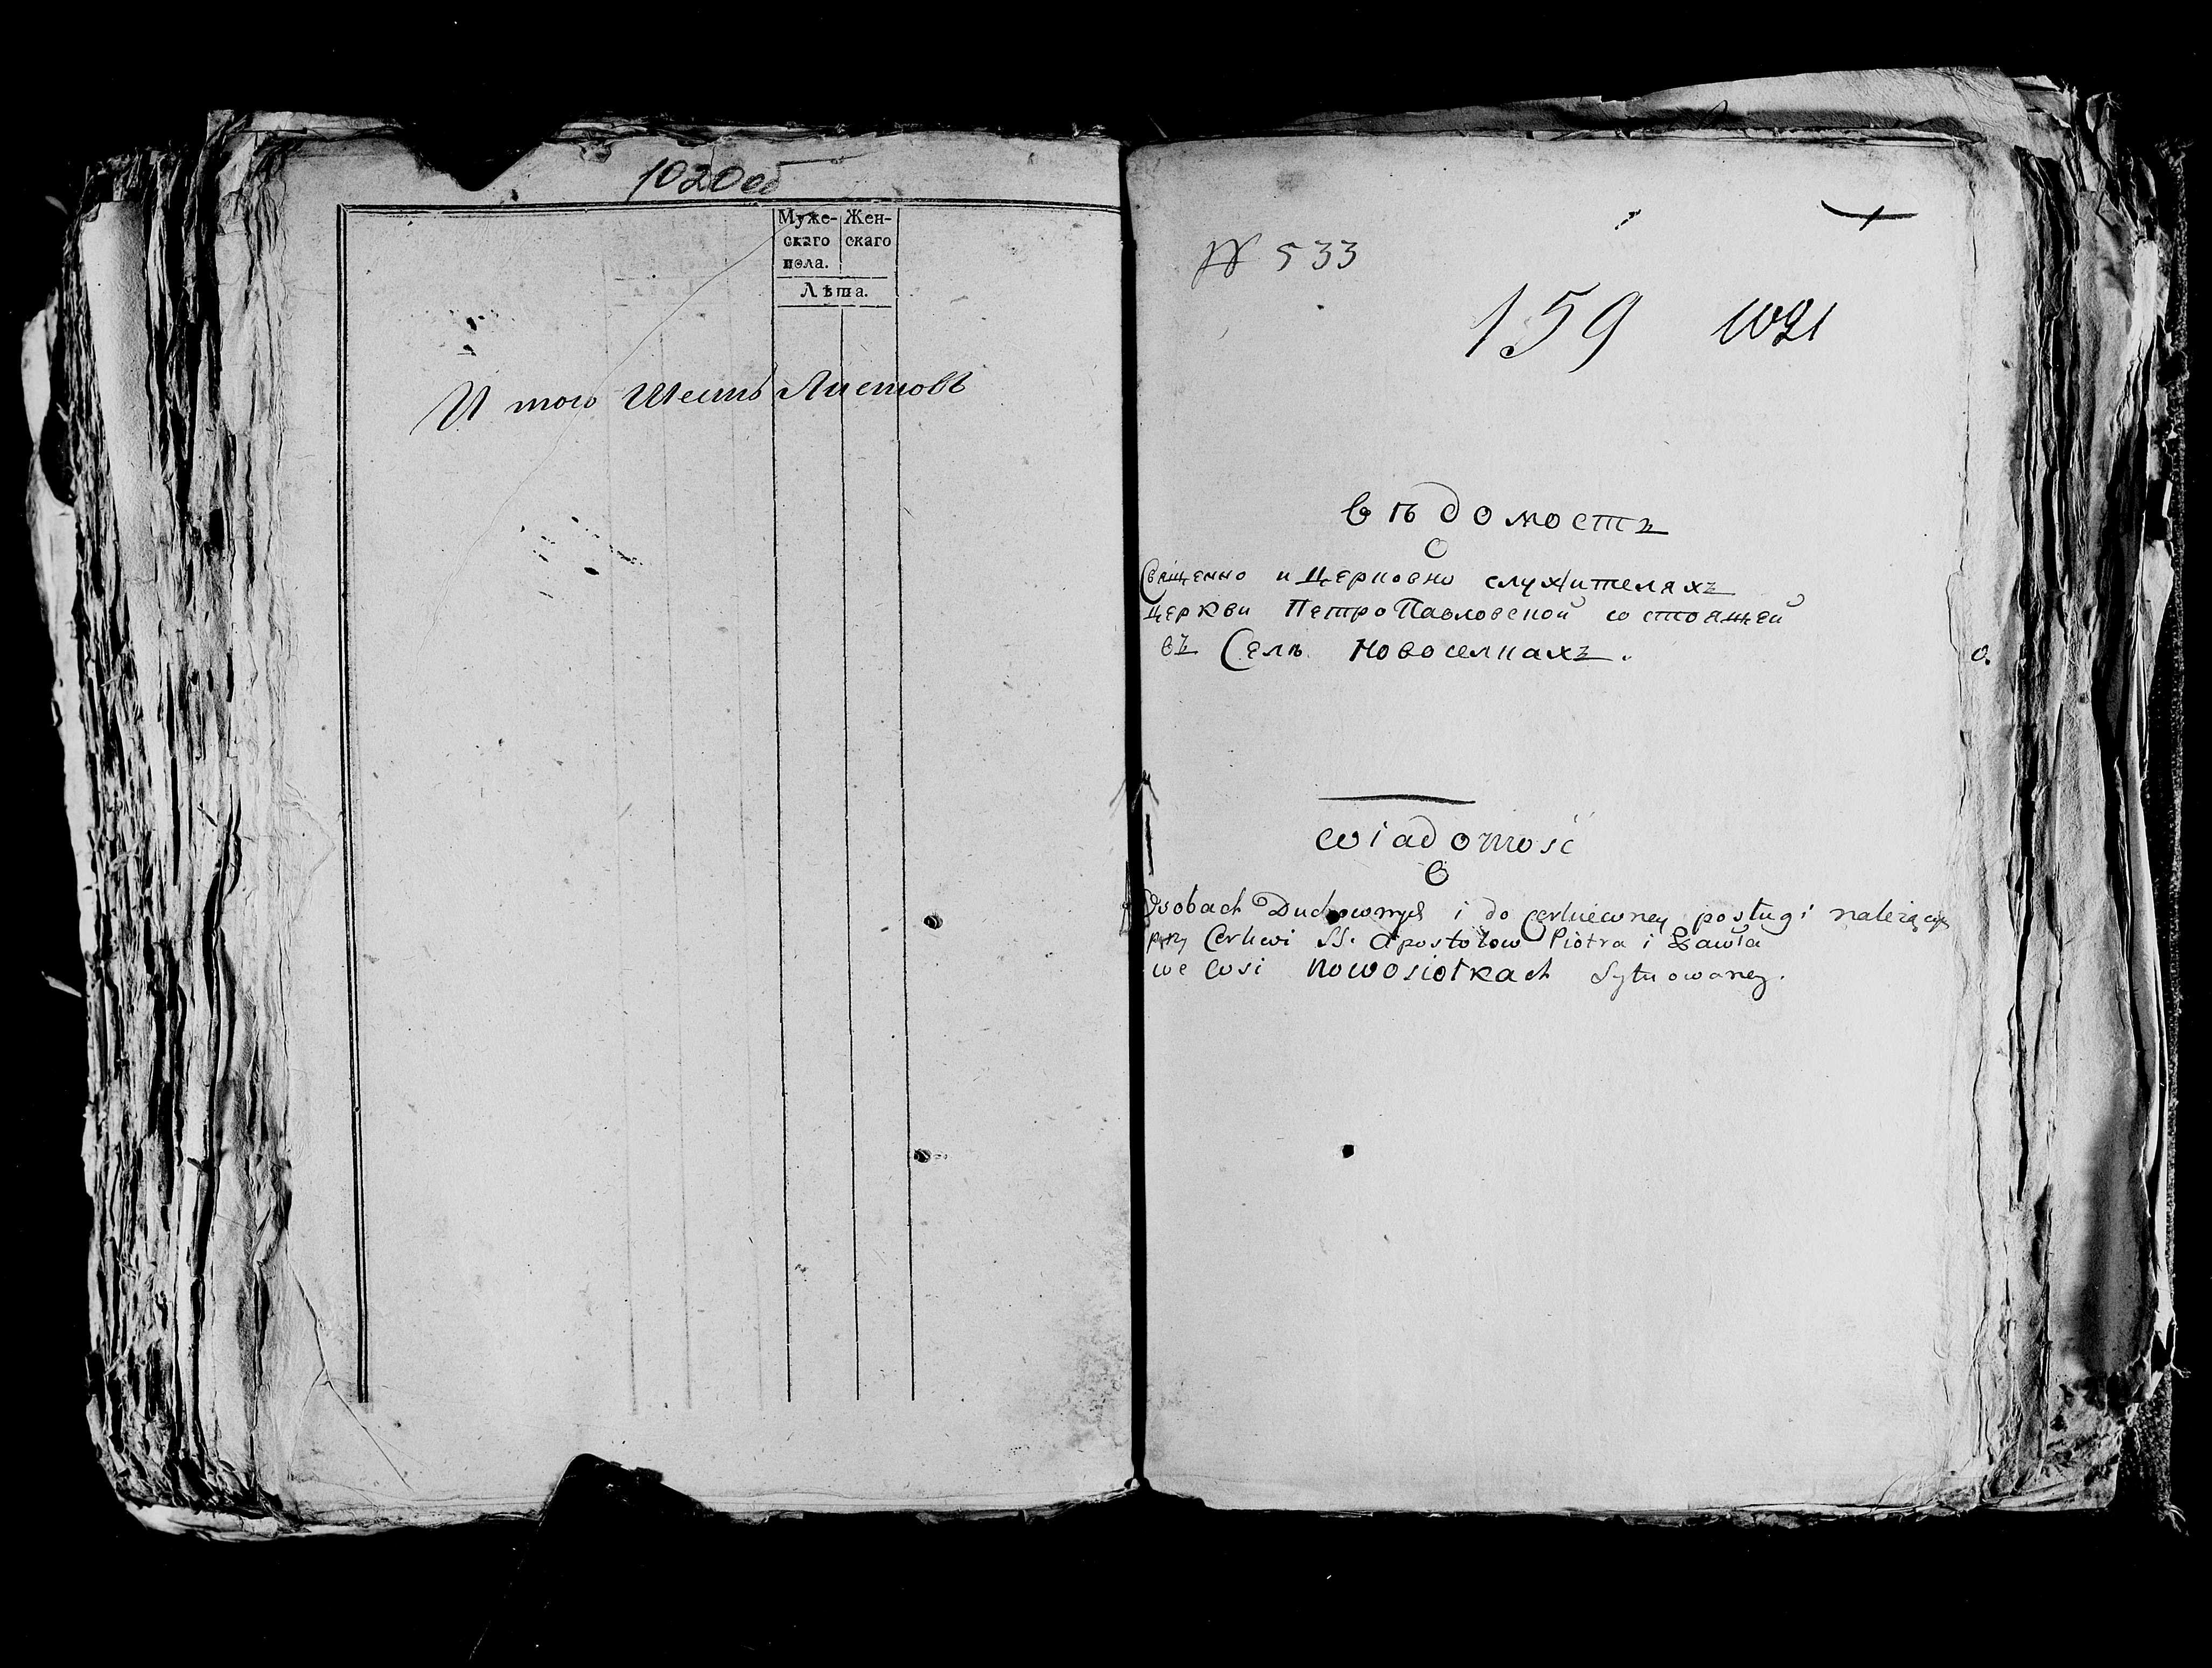 1020об
Муже- Жен-
скаго скаго
пола.
Лѣта.
И того Шесть Листовъ
N 533
159 1021
вѣдомостъ
О
Священно и Церковно служителяхъ
церкви ПетроПавловской состоящей
въ Селѣ Новоселкахъ.
wiadomość
O
Osobach Duchownych i do Cerkiewney posługi należących
przy Cerkwi SS. Apostołow Piotra i Pawła
we wsi Nowosiołkach Sytuowaney.